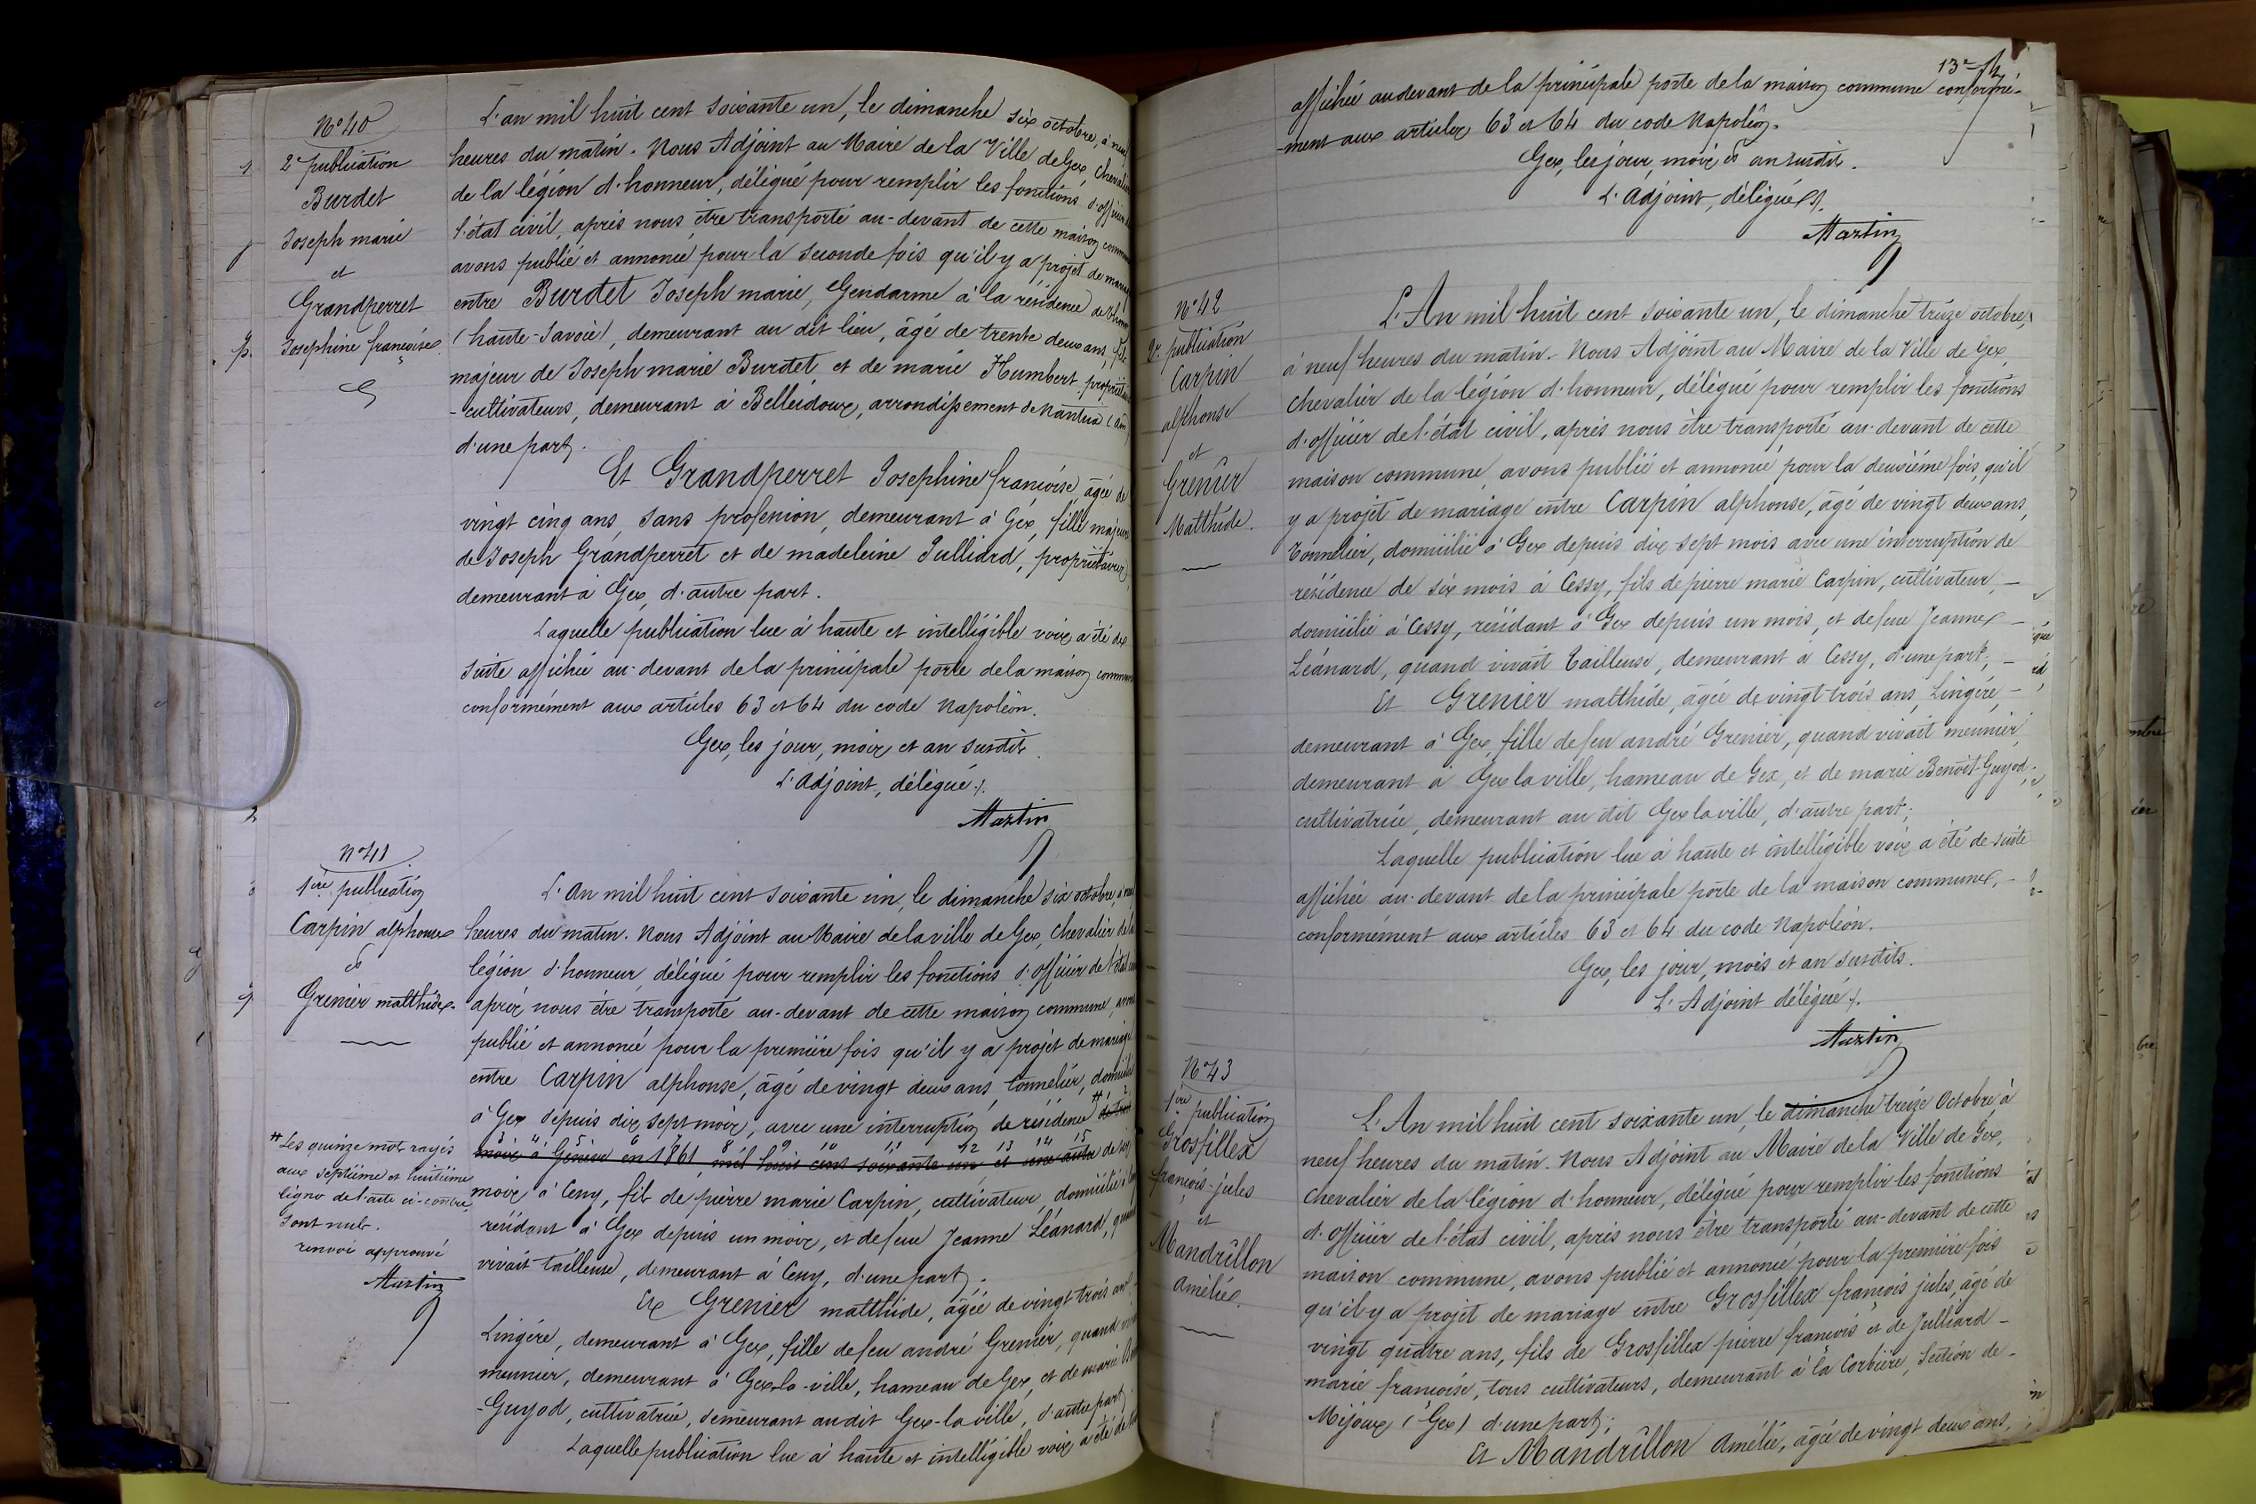 N° 40
2e publication
Burdet
Joseph marie
et
Grandperret
Josephine françoise.
L'an mil huit cent soixante un, le dimanche six octobre, à neuf
heures du matin. Nous Adjoint au Maire de la Ville de Gex, Chevalier
de la légion d'honneur, délégué pour remplir les fonctions d'officier de
l'état civil, après nous être transporté au-devant de cette maison commune
avons publié et annoncé pour la seconde fois qu'il y a projet de mariage
entre Burdet Joseph marie, Gendarme à la résidence de
(haute-Savoie), demeurant au dit lieu, âgé de trente deux ans, fils
majeur de Joseph marie Burdet et de marie Humbert, propriétaires
-cultivateurs, demeurant à Belleidoux, arrondissement de Nantua (Ain)
d'une part.
Et Grandperret Josephine françoise, âgée de
vingt cinq ans, sans profession, demeurant à Gex, fille majeure
de Joseph Grandperret et de madeleine Julliard, propriétaires,
demeurant à Gex, d'autre part.
Laquelle publication lue à haute et intelligible voix a été de
suite affichée au-devant de la principale porte de la maison commune
conformément aux articles 63 et 64 du code Napoléon.
Gex, les jour, mois et an susdits.
L'Adjoint, délégué.
Martin
N° 41
1ère publication
Carpin alphonse
et
Grenier matthide.
L'An mil huit cent soixante un, le dimanche six octobre, à neuf
heures du matin. Nous Adjoint au Maire de la ville de Gex, chevalier de la
légion d'honneur, délégué pour remplir les fonctions d'officier de l'état civil
après nous être transporté au-devant de cette maison commune, avons
publié et annoncé pour la première fois qu'il y a projet de mariage
entre Carpin alphonse, âgé de vingt deux ans, tonnelier, domicilié
à Gex depuis dix sept mois, avec une interruption de résidence # de trois
3 4 5 6 7 8 9 10 11 12 13 14 15
mois à Genève en 1861 mil huit cent soixante un et une autre de six
mois à Cessy, fils de pierre marie Carpin, cultivateur, domicilié à Cessy
résidant à Gex depuis un mois, et de feue Jeanne Léanard, quand
vivait tailleuse, demeurant à Cessy, d'une part.
Et Grenier matthide, âgée de vingt trois ans,
Lingère, demeurant à Gex, fille de feu andré Grenier, quand vivait
meunier, demeurant à Gex-la-ville, hameau de Gex, et de marie Benoit
-Guyod, cultivatrice, demeurant audit Gex-la-ville, d'autre part,
Laquelle publication lue à haute et intelligible voix a été de
# Les quinze mots rayés
aux septième et huitième
lignes de l'acte ci-contre
sont nuls.
renvoi approuvé
Martin
13e
affichée au devant de la principale porte de la maison commune conformé-
-ment aux articles 63 et 64 du code Napoléon.
Gex, les jour, mois et an susdits.
L'Adjoint, délégué.
Martin
N° 42
2e publication
Carpin
alphonse
et
Grenier
Matthide.
L'An mil huit cent soixante un, le dimanche treize octobre,
à neuf heures du matin. Nous Adjoint au Maire de la Ville de Gex
chevalier de la légion d'honneur, délégué pour remplir les fonctions
d'officier de l'état civil, après nous être transporté au-devant de cette
maison commune, avons publié et annoncé pour la deuxième fois, qu'il
y a projet de mariage entre Carpin alphonse, âgé de vingt deux ans,
Tonnelier, domicilié à Gex depuis dix sept mois avec une interruption de
résidence de six mois à Cessy, fils de pierre marie Carpin, cultivateur, -
domicilié à Cessy, résidant à Gex depuis un mois, et de feue Jeanne -
Léanard, quand vivait Tailleuse, demeurant à Cessy, d'une part; -
Et Grenier matthide, âgée de vingt-trois ans, Lingère, -
demeurant à Gex, fille de feu andré Grenier, quand vivait meunier,
demeurant à Gex la ville, hameau de Gex, et de marie Benoit-Guyod,
cultivatrice, demeurant au dit Gex la ville, d'autre part;
Laquelle publication lue à haute et intelligible voix a été de suite
affichée au-devant de la principale porte de la maison commune, -
conformément aux articles 63 et 64 du code Napoléon.
Gex, les jour, mois et an susdits.
L'Adjoint délégué.
Martin
N° 43
1ère publication
Grosfillex
françois-jules
et
Mandrillon
Amélie.
L'An mil huit cent soixante un, le dimanche treize Octobre à
neuf heures du matin. Nous Adjoint au Maire de la Ville de Gex,
Chevalier de la légion d'honneur, délégué pour remplir les fonctions
d'officier de l'état civil, après nous être transporté au-devant de cette
maison commune, avons publié et annoncé pour la première fois
qu'il y a projet de mariage entre Grosfillex françois jules, âgé de
vingt quatre ans, fils de Grosfillex pierre françois et de Julliard -
marie françoise, tous cultivateurs, demeurant à la Corbière, Section de -
Mijoux (Gex) d'une part;
Et Mandrillon Amélie, âgée de vingt deux ans,